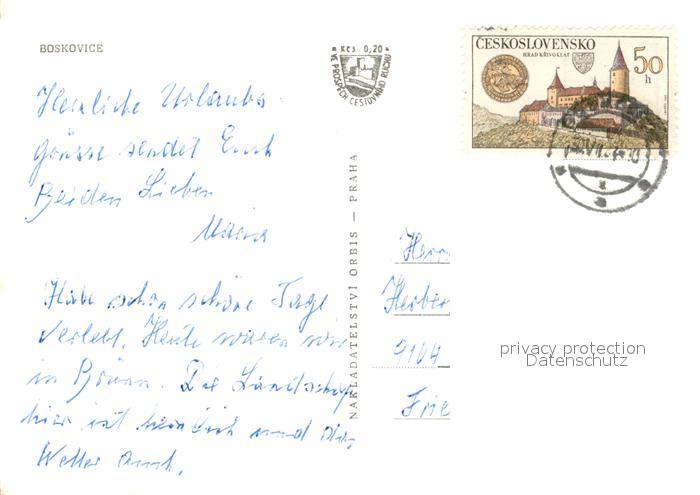 BOSKOVICE
Kčs 0,20
VE PROSPĚCH CESTOVNÍHO RUCHU
ČESKOSLOVENSKO
HRAD KŘIVOKLÁT
50
h
Herzliche Urlaubs
Grüsse sendet Euch
Beiden Lieben
Maria
Habe schon schöne Tage
verlebt. Heute waren wir
in Brünn. Die Landschaft
hier ist herrlich und das
Wetter auch.
NAKLADATELSTVÍ ORBIS — PRAHA
Herrn
Herber
9104
Frie
privacy protection
Datenschutz